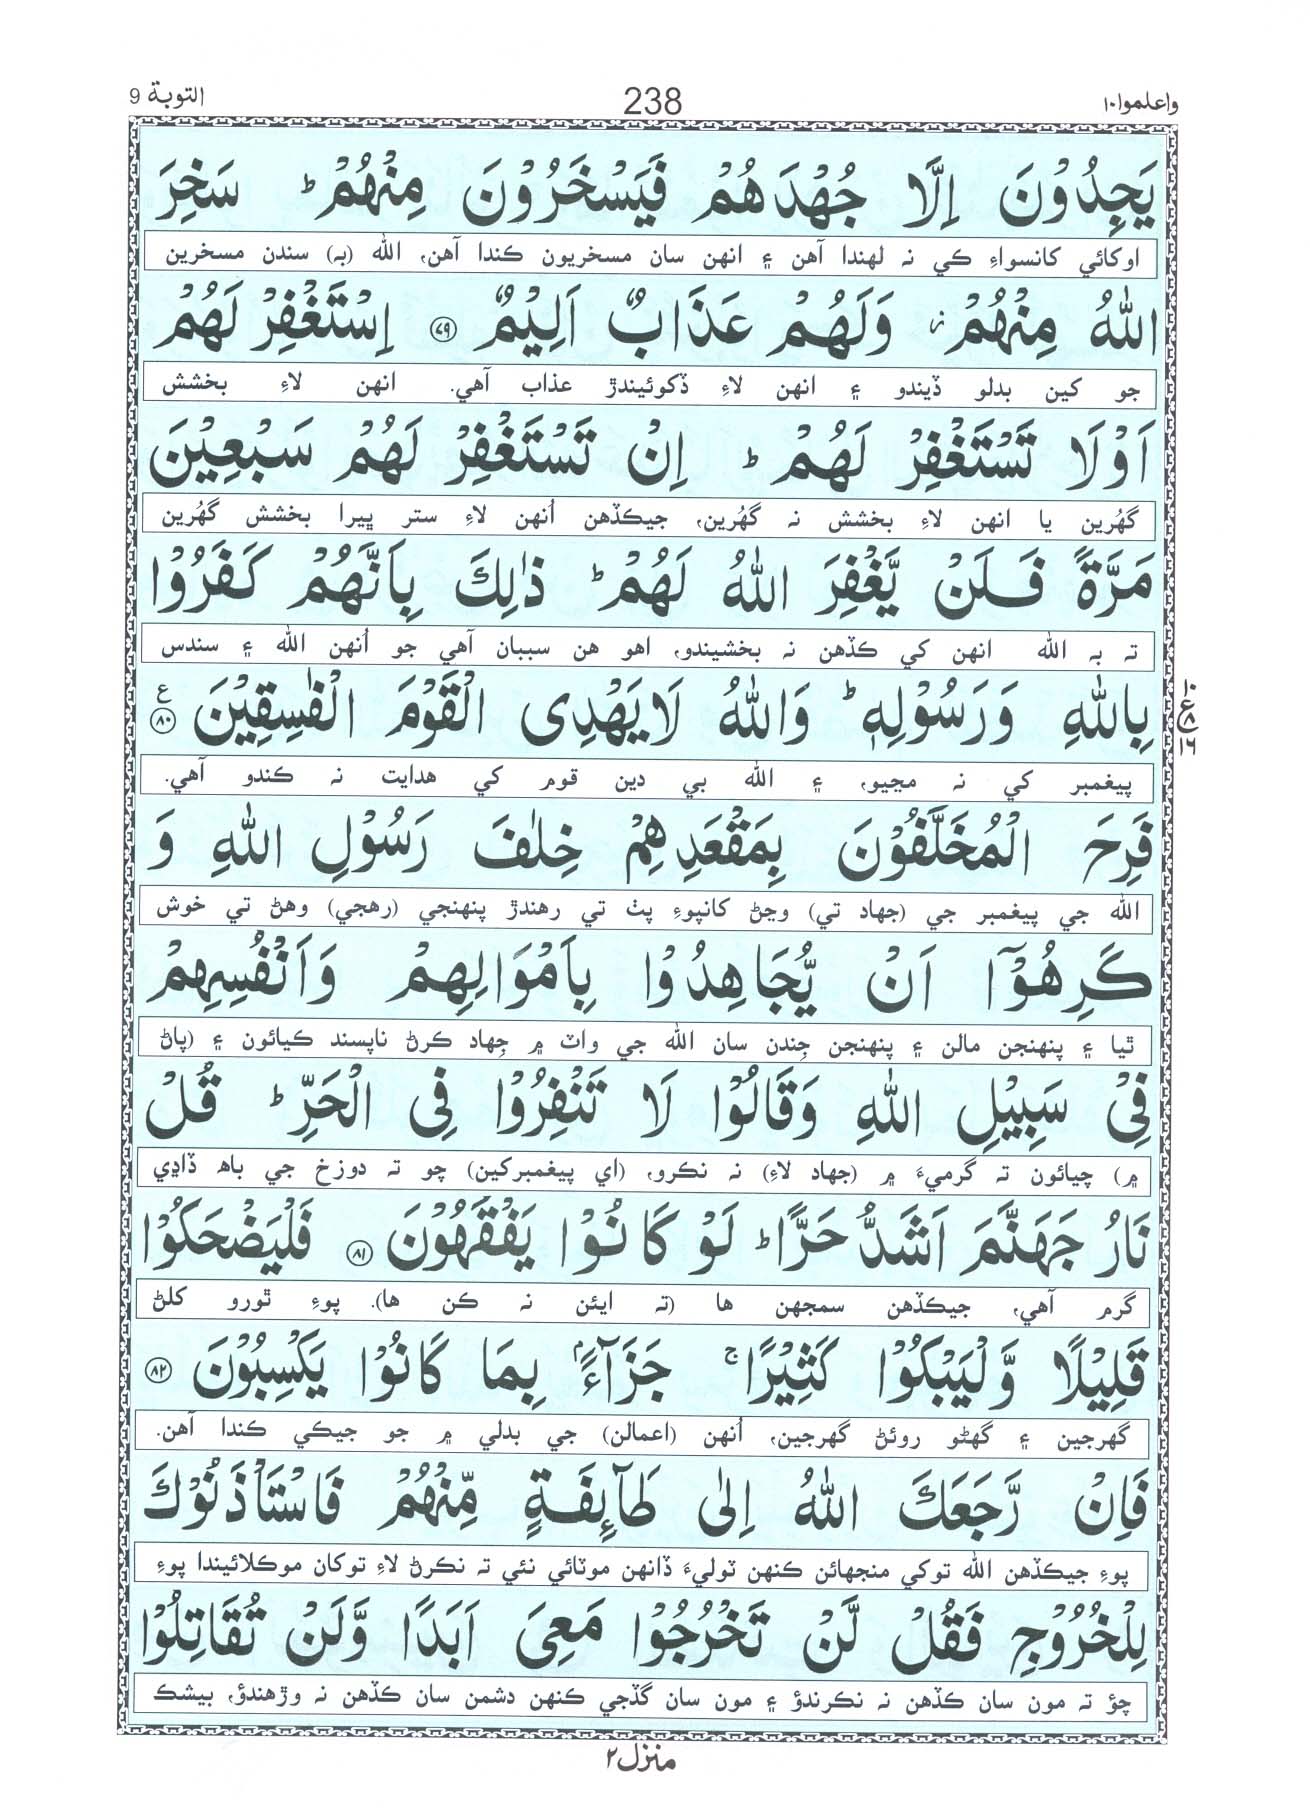 واعلموا۱۰ 238 التوبة 9
يَجِدُوْنَ اِلَّا جُهْدَهُمْ فَيَسْخَرُوْنَ مِنْهُمْ ؕ سَخِرَ
اوکائي کانسواءِ کي نہ لھندا آھن ۽ انھن سان مسخريون ڪندا آھن، الله (بہ) سندن مسخرين
اللّٰهُ مِنْهُمْ ۫ وَلَهُمْ عَذَابٌ اَلِيْمٌ ﴿۷۹﴾ اِسْتَغْفِرْ لَهُمْ
جو کين بدلو ڏيندو ۽ انھن لاءِ ڏکوئيندڙ عذاب آھي. انھن لاءِ بخشش
اَوْلَا تَسْتَغْفِرْ لَهُمْ ؕ اِنْ تَسْتَغْفِرْ لَهُمْ سَبْعِيْنَ
گھُرين يا انھن لاءِ بخشش نہ گھُرين، جيڪڏھن اُنھن لاءِ ستر ڀيرا بخشش گھُرين
مَرَّةً فَلَنْ يَّغْفِرَ اللّٰهُ لَهُمْ ؕ ذٰلِكَ بِاَنَّهُمْ كَفَرُوْا
تہ بہ الله انھن کي ڪڏھن نہ بخشيندو، اھو ھن سببان آھي جو اُنھن الله ۽ سندس
بِاللّٰهِ وَرَسُوْلِهٖ ؕ وَاللّٰهُ لَا يَهْدِى الْقَوْمَ الْفٰسِقِيْنَ ﴿۸۰﴾ ع
۱۰ ع ۸ ۱۶
پيغمبر کي نہ مڃيو، ۽ الله بي دين قوم کي ھدايت نہ ڪندو آھي.
فَرِحَ الْمُخَلَّفُوْنَ بِمَقْعَدِهِمْ خِلٰفَ رَسُوْلِ اللّٰهِ وَ
الله جي پيغمبر جي (جھاد تي) وڃڻ کانپوءِ پٺ تي رھندڙ پنھنجي (رھجي) وھڻ تي خوش
كَرِهُوْٓا اَنْ يُّجَاهِدُوْا بِاَمْوَالِهِمْ وَاَنْفُسِهِمْ
ٿيا ۽ پنھنجن مالن ۽ پنھنجن جِندن سان الله جي واٽ ۾ جِھاد ڪرڻ ناپسند ڪيائون ۽ (پاڻ
فِىْ سَبِيْلِ اللّٰهِ وَقَالُوْا لَا تَنْفِرُوْا فِى الْحَرِّ ؕ قُلْ
۾) چيائون تہ گرميءَ ۾ (جھاد لاءِ) نہ نڪرو، (اي پيغمبرکين) چو تہ دوزخ جي باھ ڏاڍي
نَارُ جَهَنَّمَ اَشَدُّ حَرًّا ؕ لَوْ كَانُوْا يَفْقَهُوْنَ ﴿۸۱﴾ فَلْيَضْحَكُوْا
گرم آھي، جيڪڏھن سمجھن ھا (تہ ايئن نہ ڪن ھا). پوءِ ٿورو کلڻ
قَلِيْلًا وَّلْيَبْكُوْا كَثِيْرًا ۚ جَزَآءًۢ بِمَا كَانُوْا يَكْسِبُوْنَ ﴿۸۲﴾
گھرجين ۽ گھڻو روئڻ گھرجين، اُنھن (اعمالن) جي بدلي ۾ جو جيڪي ڪندا آھن.
فَاِنْ رَّجَعَكَ اللّٰهُ اِلٰى طَآئِفَةٍ مِّنْهُمْ فَاسْتَاْذَنُوْكَ
پوءِ جيڪڏھن الله توکي منجھائن ڪنھن ٽوليءَ ڏانھن موٽائي نئي تہ نڪرڻ لاءِ توکان موڪلائيندا پوءِ
لِلْخُرُوْجِ فَقُلْ لَّنْ تَخْرُجُوْا مَعِىَ اَبَدًا وَّلَنْ تُقَاتِلُوْا
چؤ تہ مون سان ڪڏھن نہ نڪرندؤ ۽ مون سان گڏجي ڪنھن دشمن سان ڪڏھن نہ وڙھندؤ، بيشڪ
منزل ۲